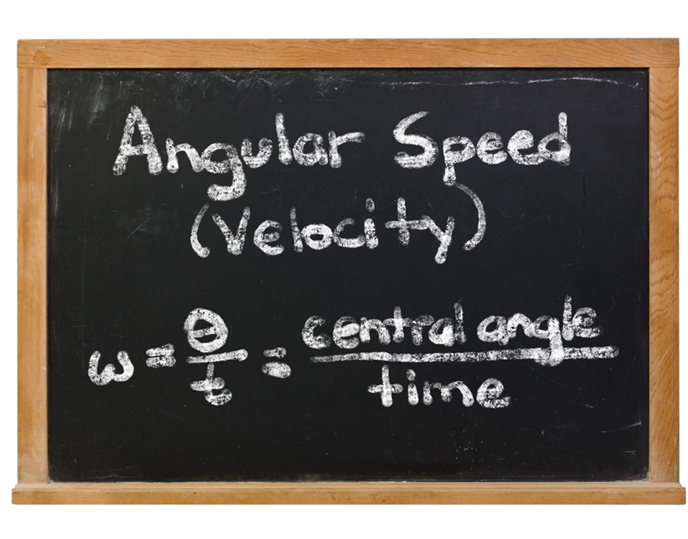 Angular Speed
(Velocity)
ω = θ/t = central angle/time